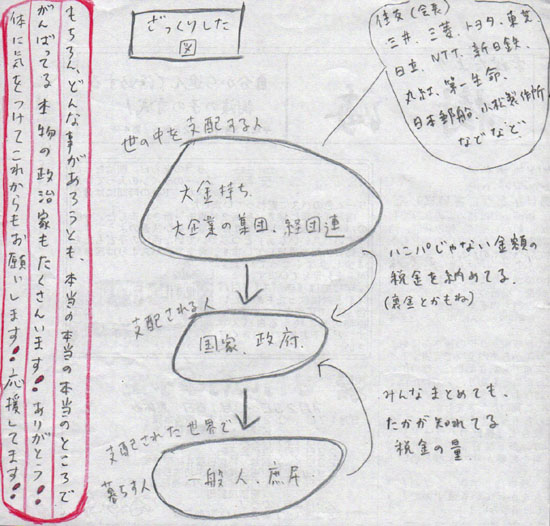 ざっくりした
図
住友(会長)
三井、三菱、トヨタ、東芝
日立、NTT、新日鉄、
丸紅、第一生命、
日本郵船、小松製作所、
などなど
世の中を支配する人
大金持ち
大企業の集団、経団連
ハンパじゃない金額の
税金を納めてる。
(裏金とかもね)
支配される人
国家、政府、
みんなまとめても、
たかが知れてる
税金の量
支配された世界で
暮らす人
一般人、庶民
もちろん、どんな事があろうとも、本当の本当の本当のところで
がんばってる本物の政治家もたくさんいます!ありがとう!
体に気をつけてこれからもお願いします!応援してます!